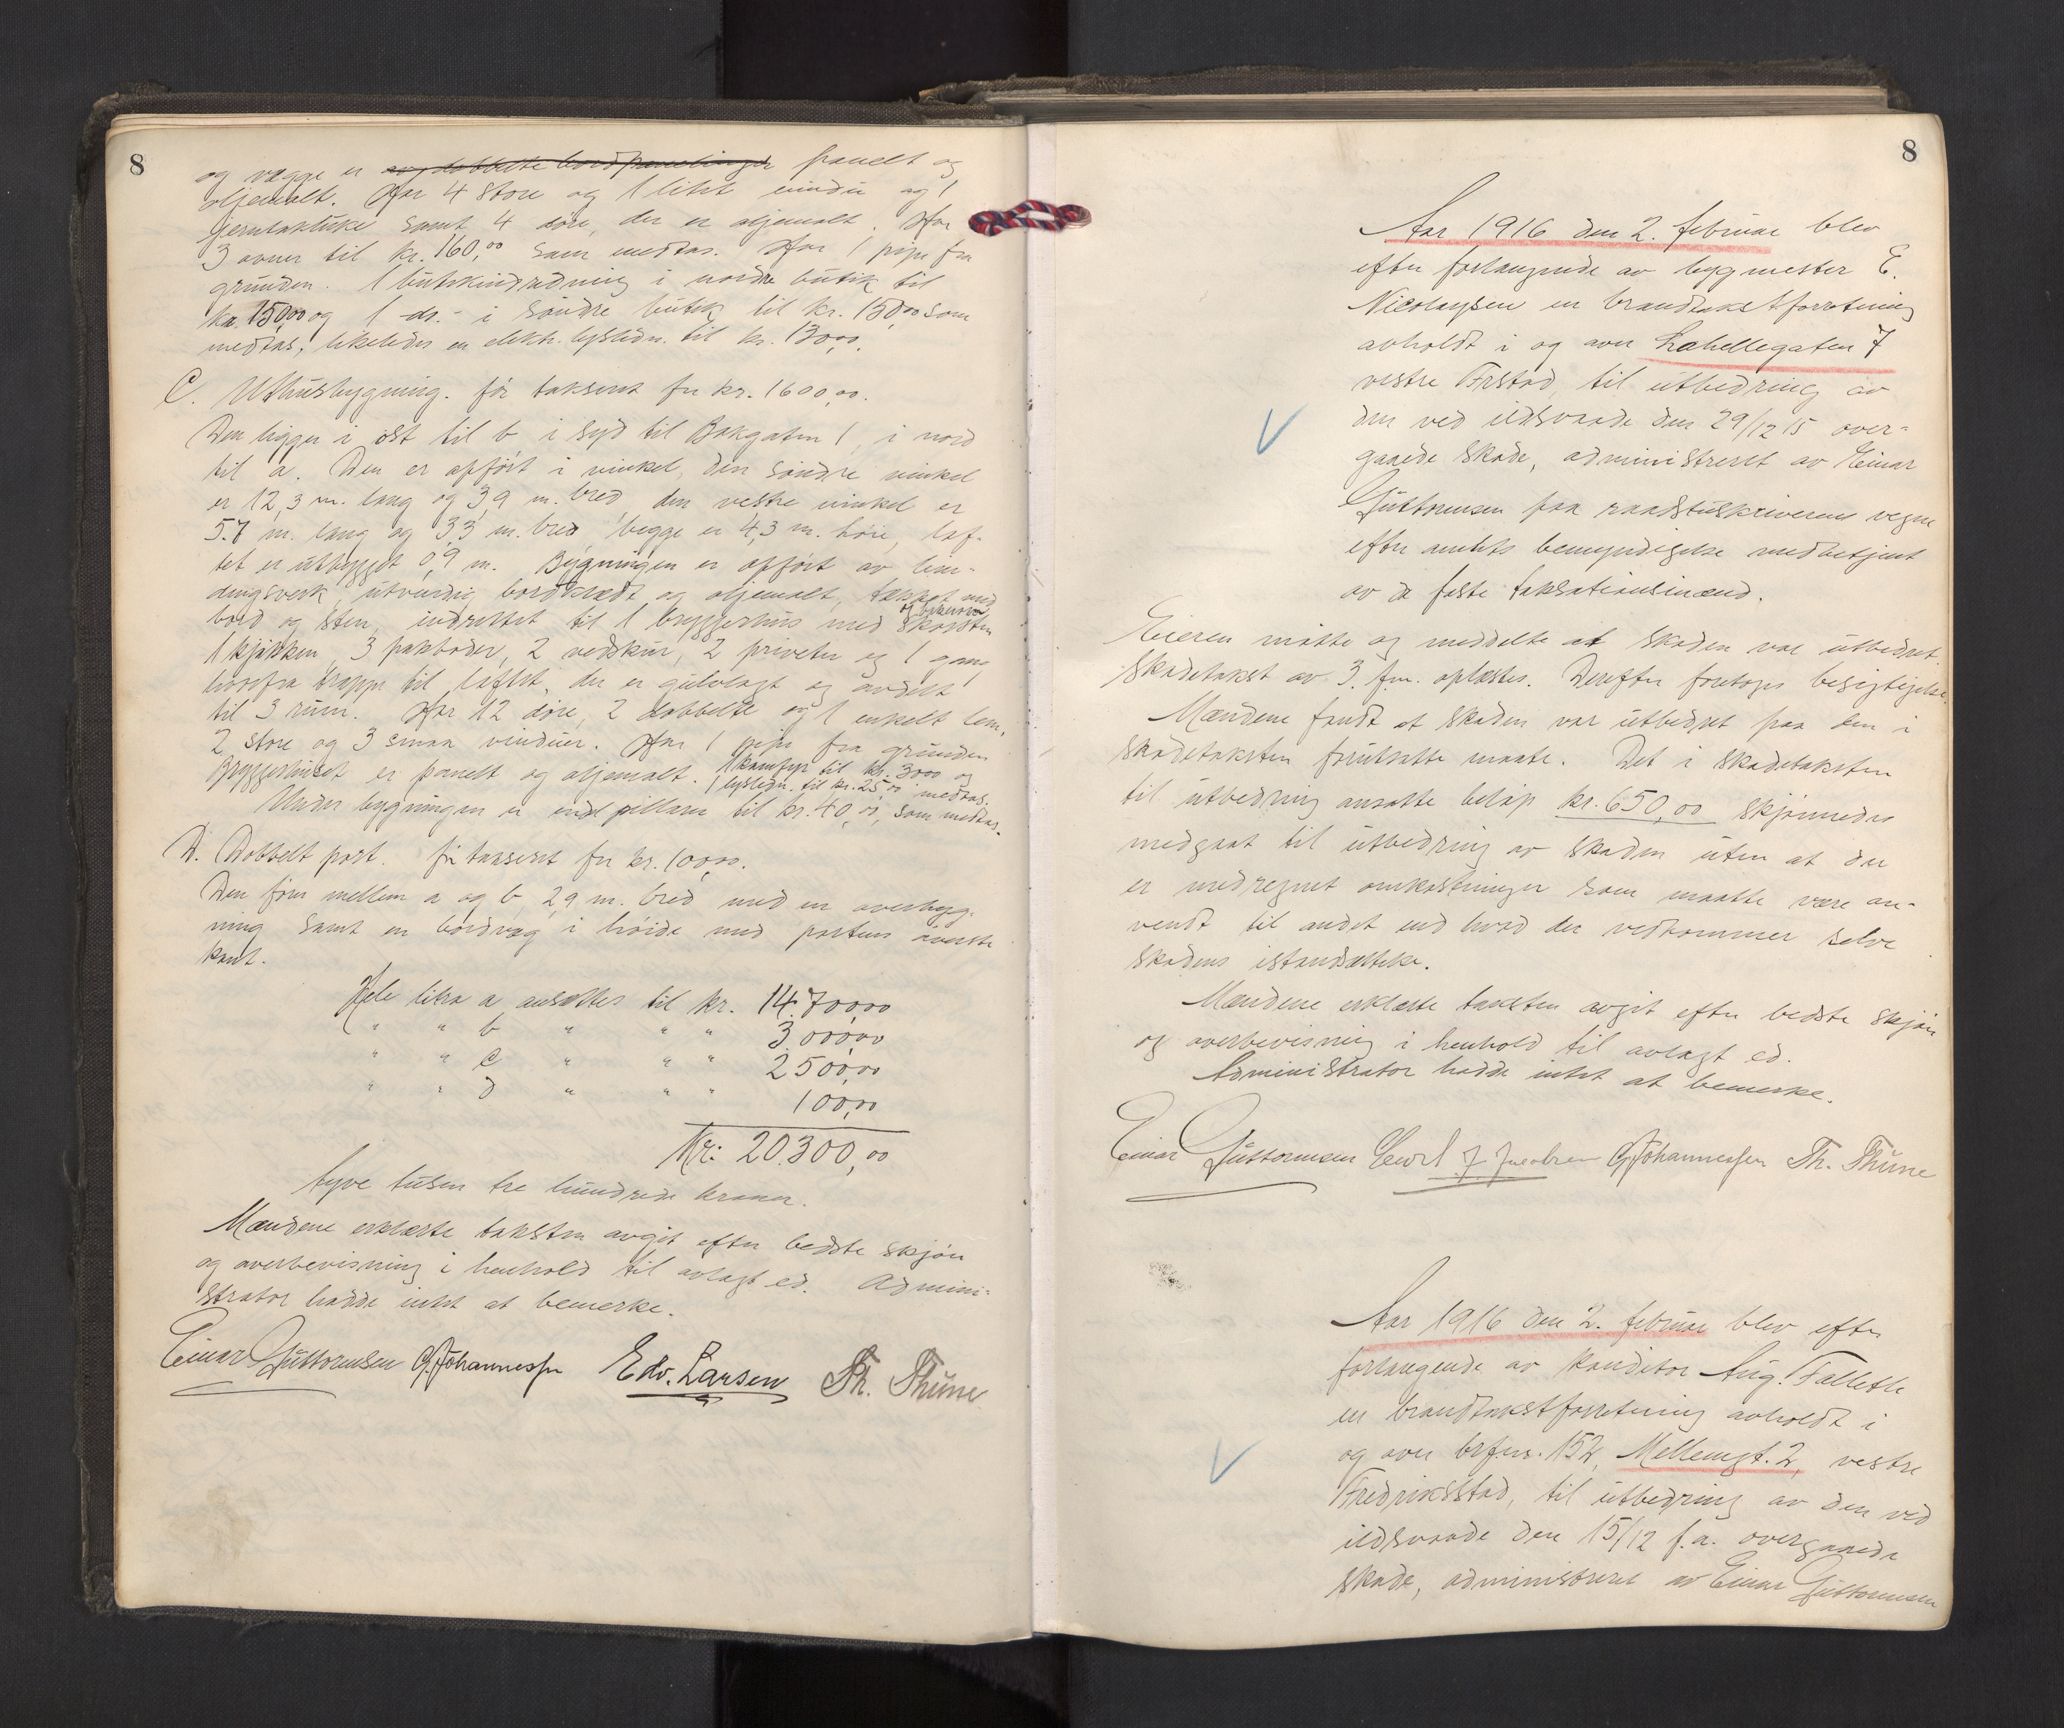 8
og vægge er av dobbelte bordpanelinger panelt og
oljemalt. Har 4 store og 1 litet vindu og 1
jerntakluke samt 4 døre, der er oljemalt. Har
3 ovner til kr. 160,00 som medtas. Har 1 pipe fra
grunden. 1 butikindredning i nordre butik til
kr. 150,00 og 1 -do.- i søndre butik til kr. 150,00 som
medtas, likeledes en elektr. lysledn. til kr. 130,00.
C. Uthusbygning. før taksert for kr. 1600,00.
Den ligger i øst til b i syd til Bakgaten 1, i nord
til a. Den er opført i vinkel, den søndre vinkel
er 12,3 m. lang og 3,9 m. bred, den vestre vinkel er
5.7 m. lang og 3,3 m. bred, begge er 4,3 m. høie, lof-
tet er utbygget 0,9 m. Bygningen er opført av bin-
dingsverk utvendig bordklædt og oljemalt, tækket med
bord og sten, indrettet til 1 bryggerhus med skorsten
og bakerovn
1 kjøkken, 3 pakboder, 2 vedskur, 2 priveter og 1 gang
hvorfra trappe til loftet, der er gulvlagt og avdelt
til 3 rum. Har 12 døre, 2 dobbelte og 1 enkelt lem,
2 store og 3 smaa vinduer. Har 1 pipe fra grunden
Bryggerhuset er panelt og oljemalt. 1 komfyr til kr. 30,00 og
1 lysledn. til kr. 25,00 medtas.
Under bygningen er endel pillarer til kr. 40,00, som medtas.
D. Dobbelt port. før taksert for kr. 100,00.
Den fører mellem a og b, 2,9 m. bred med en overbyg-
ning samt en bordvæg i høide med portens øverste
kant.
Hele litra a ansættes til kr. 14.700,00
" " b " " " 3.000,00
" " c " " " 2.500,00
" " d " " " 100,00
Kr: 20.300,00
tyve tusen tre hundrede kroner.
Mændene erklærte taksten avgit efter bedste skjøn
og overbevisning i henhold til avlagt ed. Admini-
strator hadde intet at bemerke.
Einar Guttormsen G. Johannessen Edv. Larsen Th. Thune
8
Aar 1916 den 2. februar blev
efter forlangende av bygmester E.
Nicolaysen en brandtakstforretning
avholdt i og over Labellegaten 7
vestre Frstad, til utbedring av
den ved ildsvaade den 29/12 15 over-
gaaede skade, administreret av Einar
Guttormsen paa raadstuskriverens vegne
efter amtets bemyndigelse medbetjent
av de faste taksationsmænd.
Eieren møtte og meddelte at skaden var utbedret.
Skadetakst av 3. f.m. oplæstes. Derefter foretoges besigtigelse.
Mændene fandt at skaden var utbedret paa den i
skadetaksten forutsatte maate. Det i skadetaksten
til utbedring ansatte beløp kr. 650,00 skjønnedes
medgaat til utbedring av skaden uten at der
er medregnet omkostninger som maatte være an-
vendt til andet end hvad der vedkommer selve
skadens istandsættelse.
Mændene erklærte taksten avgit efter bedste skjøn
og overbevisning i henhold til avlagt ed.
Administrator hadde intet at bemerke.
Einar Guttormsen Carl J. Jacobsen G. Johannessen Th. Thune
Aar 1916 den 2. februar blev efter
forlangende av konditor Aug. Falleth
en brandtakstforretning avholdt i
og over brfnr. 152, Mellemgt. 2, vestre
Fredriksstad, til utbedring av den ved
ildsvaade den 15/12 f.a. overgaaede
skade, administreret av Einar Guttormsen